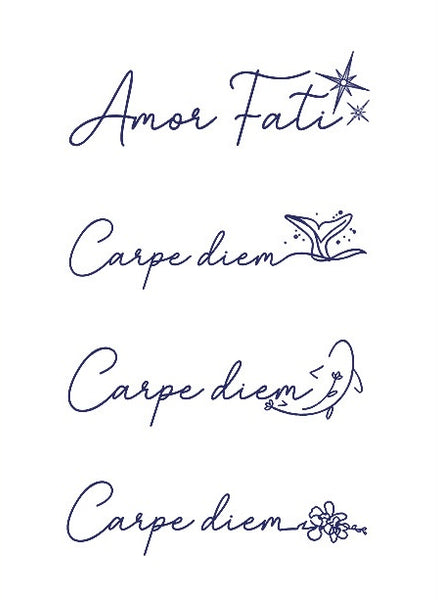 Amor Fati
Carpe diem
Carpe diem
Carpe diem